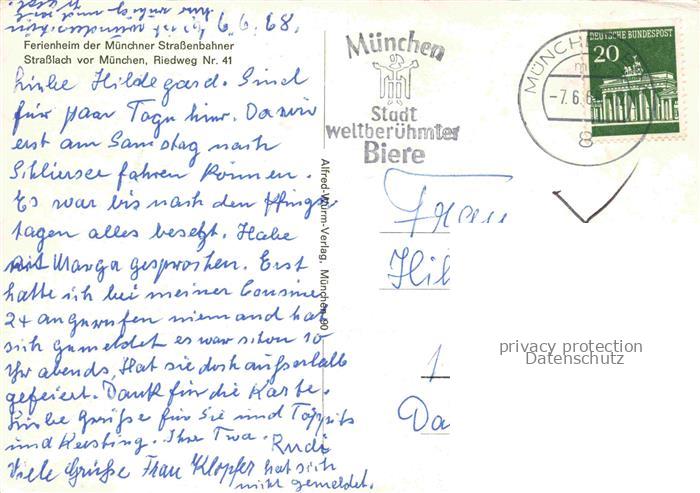 6.6.68.
Ferienheim der Münchner Straßenbahner
Straßlach vor München, Riedweg Nr. 41
Liebe Hildegard. Sind
für paar Tage hier. Da wir
erst am Samstag nach
Schliersee fahren können.
Es war bis nach den Pfingst
tagen alles besetzt. Habe
mit Marga gesprochen. Erst
hatte ich bei meiner Cousine
2x angerufen niemand hat
sich gemeldet es war schon 10
Uhr abends, Hat sie doch außerhalb
gefeiert. Dank für die Karte.
Liebe Grüße für Sie und
und Kersting. Ihre
Rudi
Viele Grüße Frau Klopfer hat sich
nicht gemeldet.
Alfred-Wurm-Verlag, München 90
München
Stadt
weltberühmter
Biere
MÜNCH
-7.6.6
8
DEUTSCHE BUNDESPOST
20
Frau
Hil
1
Da
privacy protection
Datenschutz